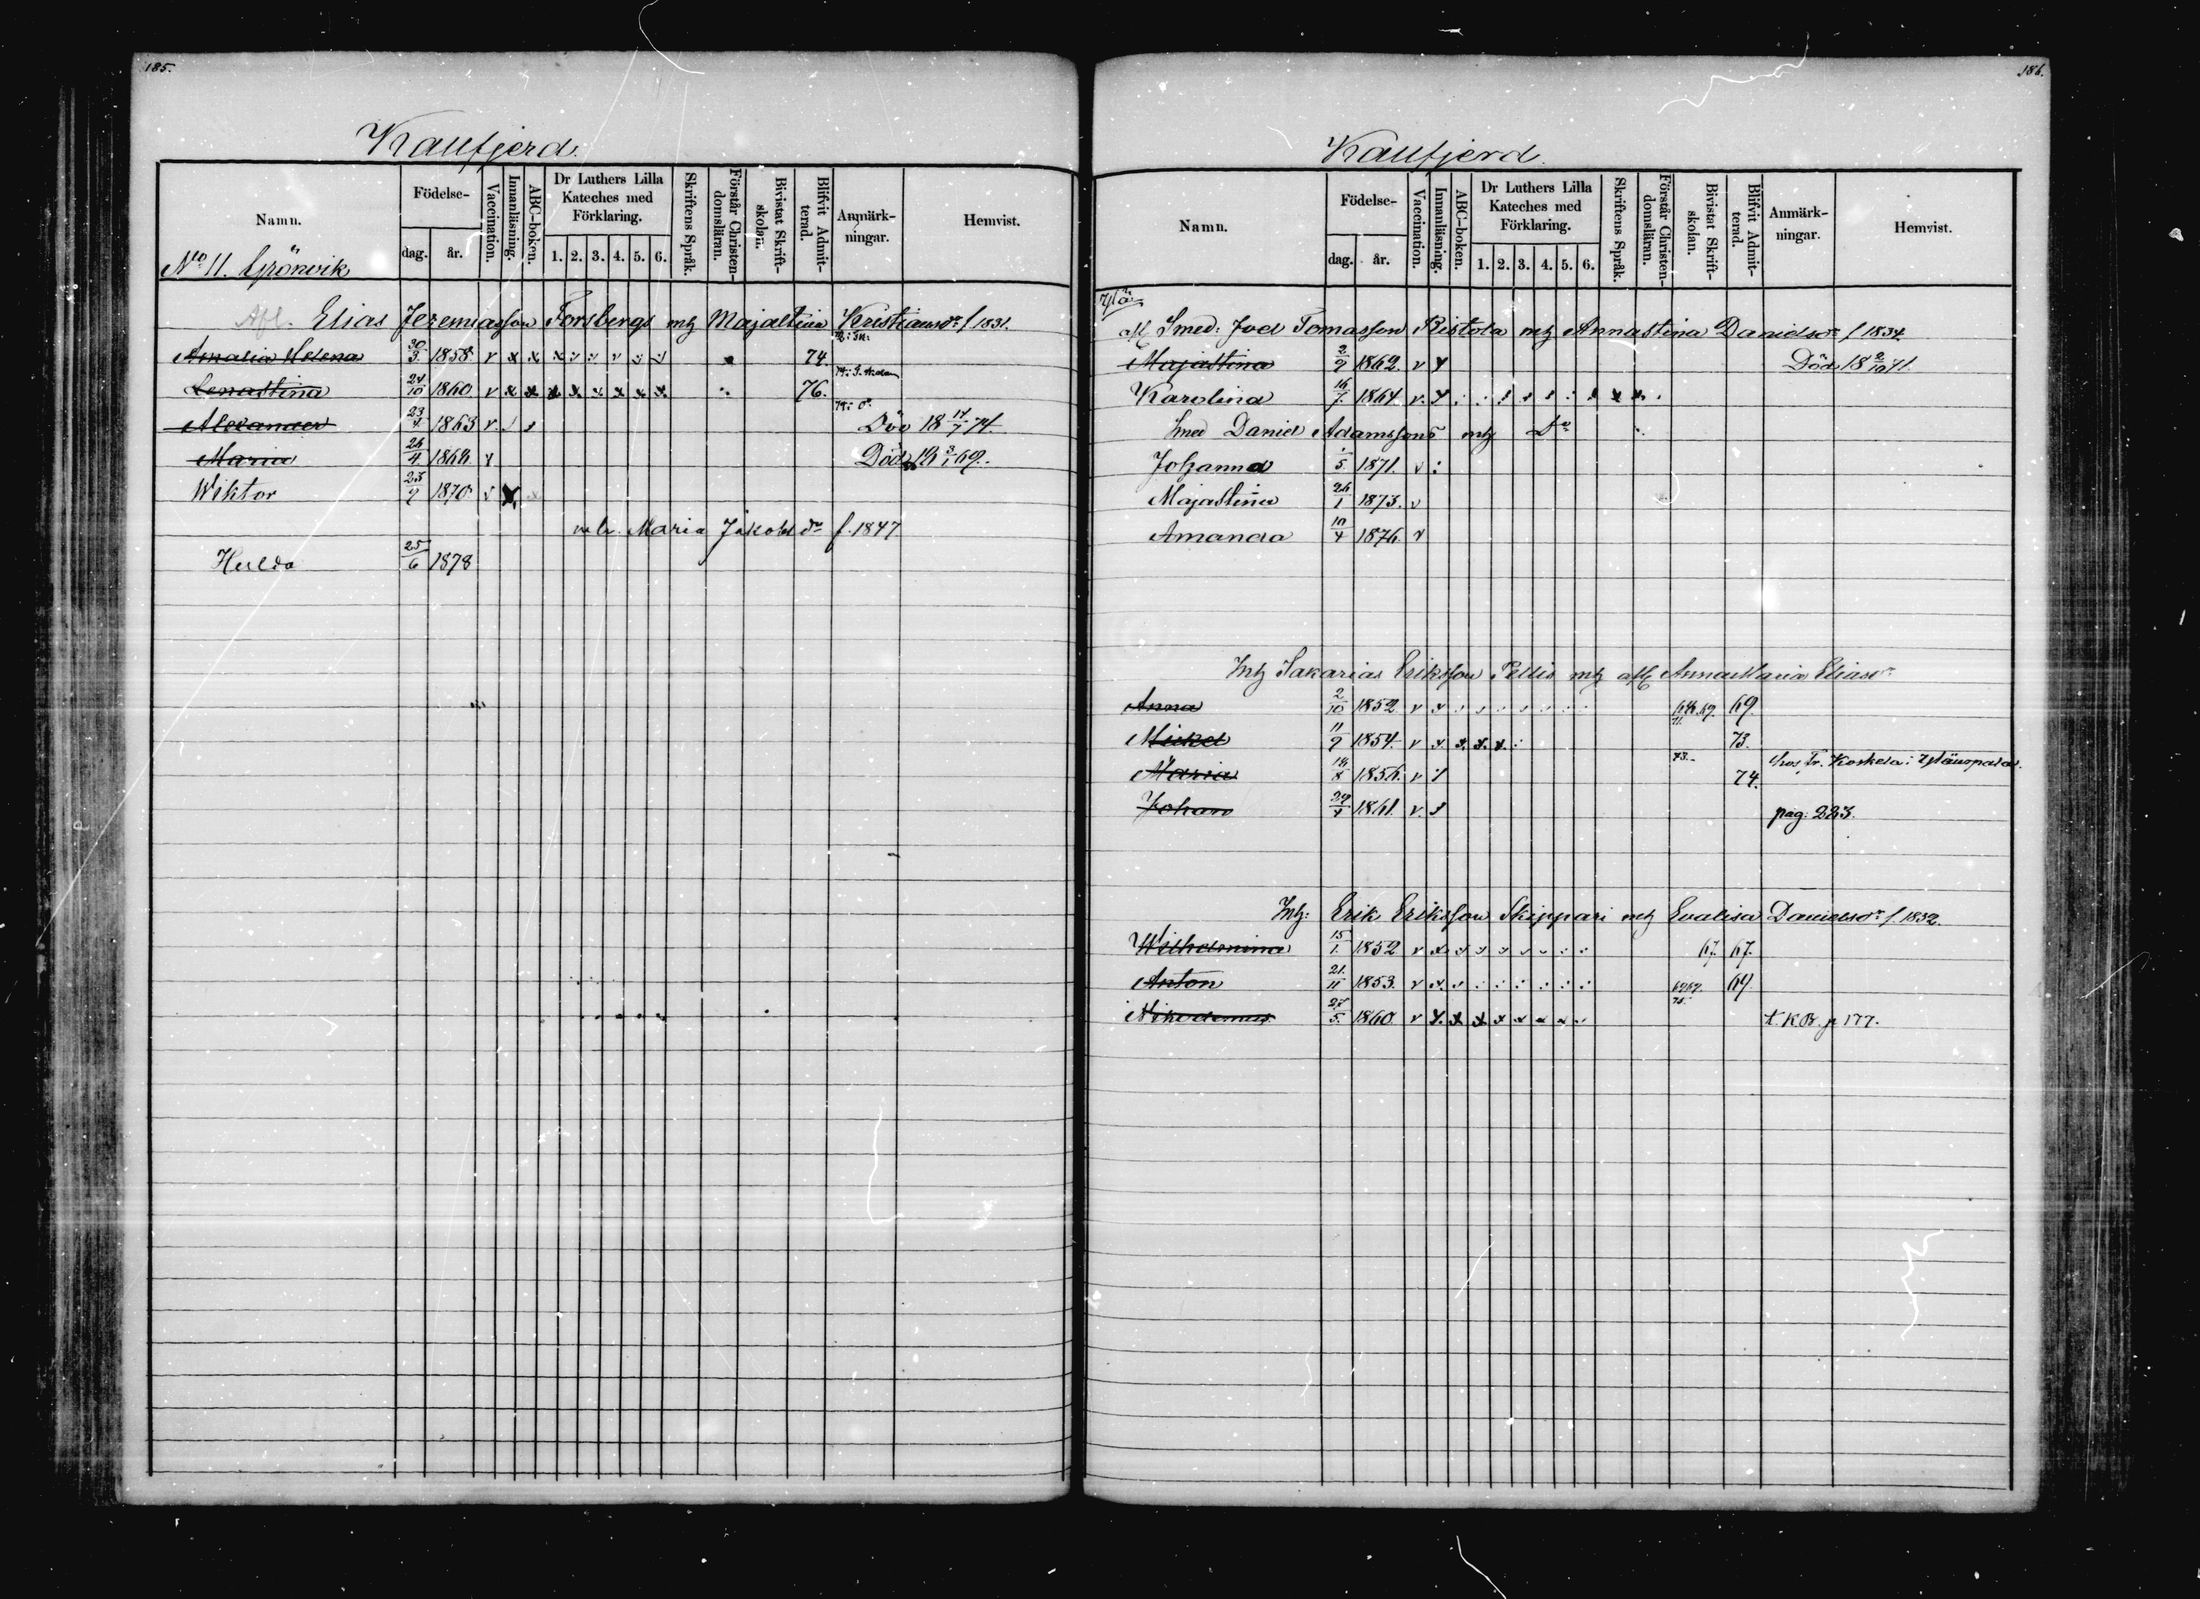 185.
Kaufjerd.
Namn.
Födelse-
dag. år.
Vaccination.
Innanläsning.
ABC-boken.
Dr Luthers Lilla Kateches med Förklaring.
1. 2. 3. 4. 5. 6.
Skriftens Språk.
Förstår Christendomsläran.
Bivistat Skriftskolan.
Blifvit Admitterad.
Anmärkningar.
Hemvist.
No 11. Grönvik
Afl. Elias Jeremiasson Forsbergs mh Majastina Kristiansdr f 1831.
Amalia Helena 30/3 1858 v x x 74.
Lenastina 24/10 1860 v x x x x x x x x 76.
Alexander 23/4 1863 v Död 18 17/7 74.
Maria 24/4 1868 Död 18 3/1 69.
Wiktor 23/9 1870 v x
Maria Jakobsdr f. 1847
Hulda 25/6 1878
186.
Kaufjerd.
Namn.
Födelse-
dag. år.
Vaccination.
Innanläsning.
ABC-boken.
Dr Luthers Lilla Kateches med Förklaring.
1. 2. 3. 4. 5. 6.
Skriftens Språk.
Förstår Christendomsläran.
Bivistat Skriftskolan.
Blifvit Admitterad.
Anmärkningar.
Hemvist.
afl Smed: Joel Tomasson Ristola mh Annastina Danielsdr f 1834.
Majastina 2/9 1862. v Död 18 2/10 71.
Karolina 16/7 1864. v.
Smed Daniel Adamssons mh Do
Johanna 5 1871. v
Majastina 26/1 1873. v
Amanda 10/4 1876. v
Inh Sakarias Eriksson Pellis mh afl Anna Maria Eliasdr
Anna 2/10 1852 v 68. 69. 69.
Mickel 11/9 1854. v 73.
Maria 18/8 1856. v 73. 74. hos Tr. Koskela i
Johan 29/4 1861. v. pag: 223.
Inh: Erik Eriksson Skippari mh Evalisa Danielsdr f. 1832.
Wilhelmina 15/1 1852 v 67. 67.
Anton 21/11 1853. v 69.
Nikodemus 27/5 1860 v t. K.B. p 177.